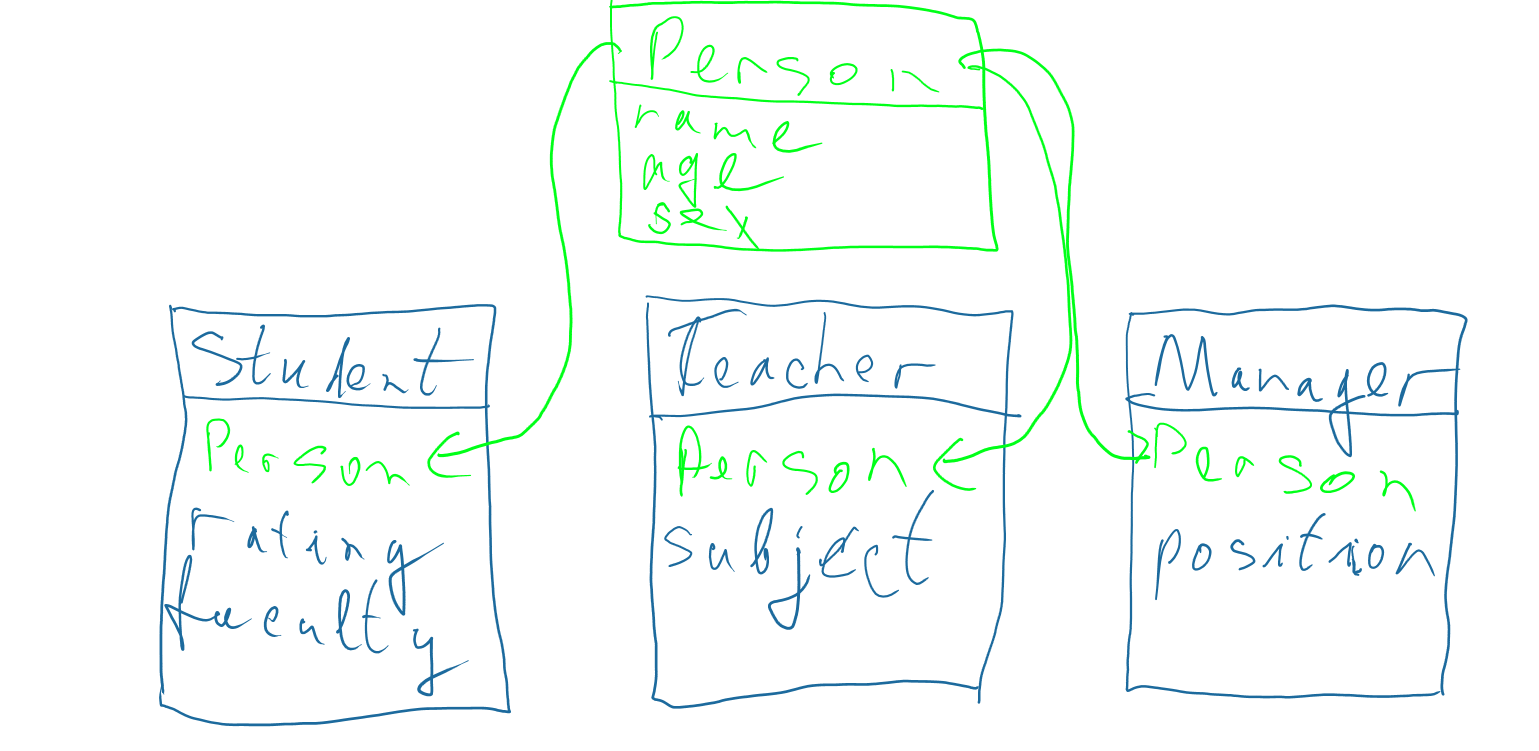 Person
name
age
sex
Student
Person
rating
faculty
Teacher
Person
subject
Manager
Person
position